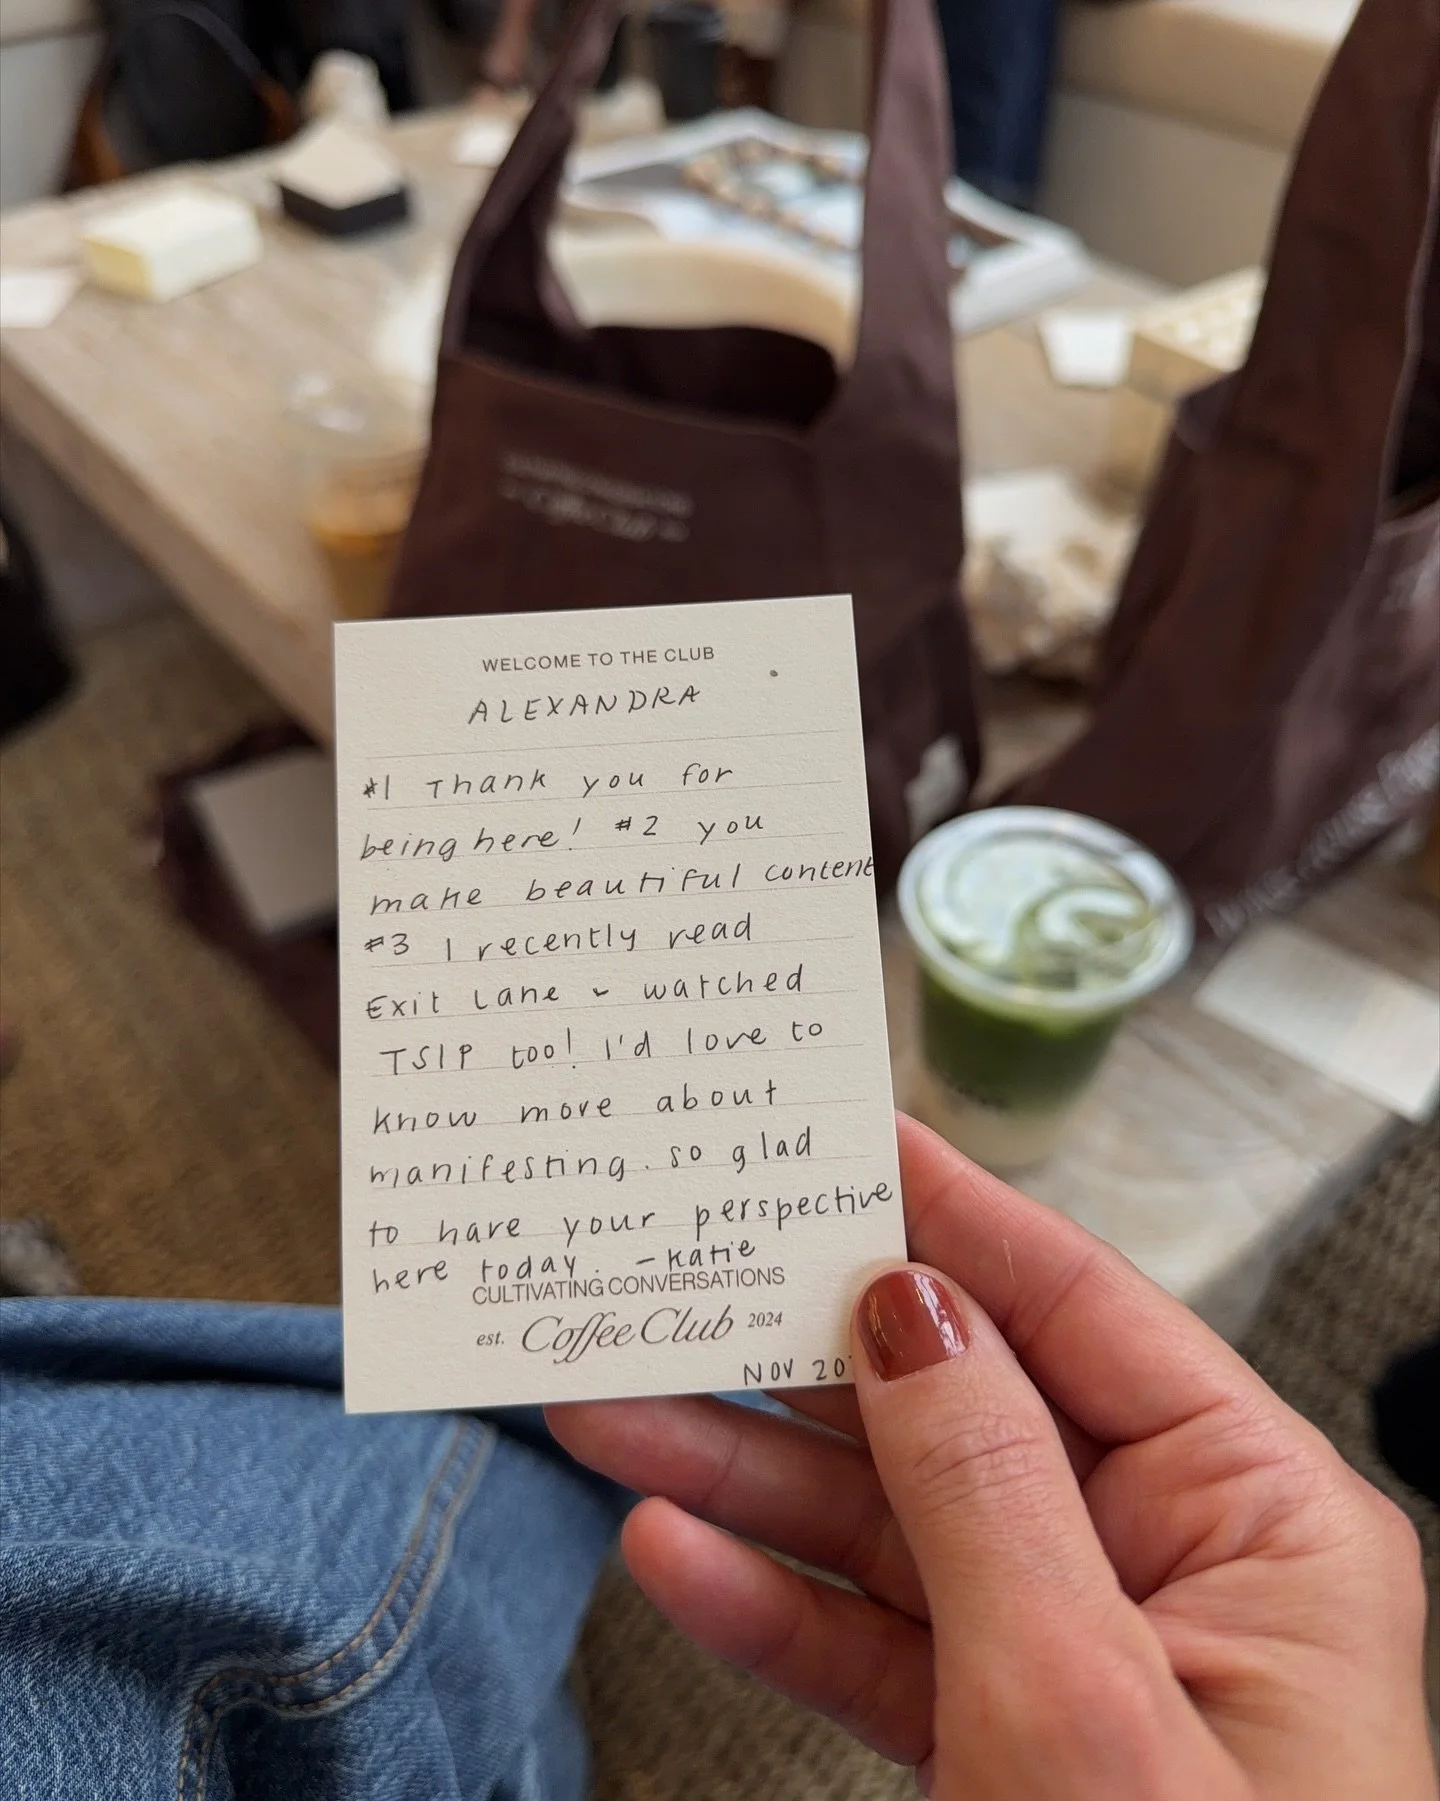 WELCOME TO THE CLUB
ALEXANDRA
#1 Thank you for
being here! #2 you
make beautiful content
#3 I recently read
Exit Lane & watched
TSIP too! I'd love to
know more about
manifesting. so glad
to have your perspective
here today. -Katie
CULTIVATING CONVERSATIONS
est. Coffee Club 2024
NOV 20